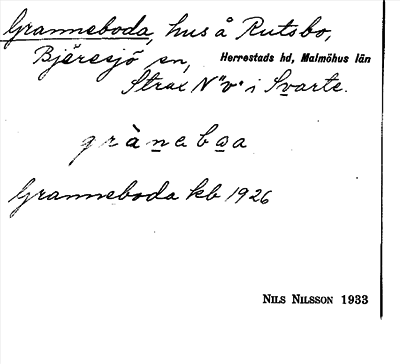 Granneboda, hus å Rutsbo,
Bjäresjö sn, Herrestads hd, Malmöhus län
Strax N"v. i Svarte.
gràneboa
Granneboda kb 1926
NILS NILSSON 1933